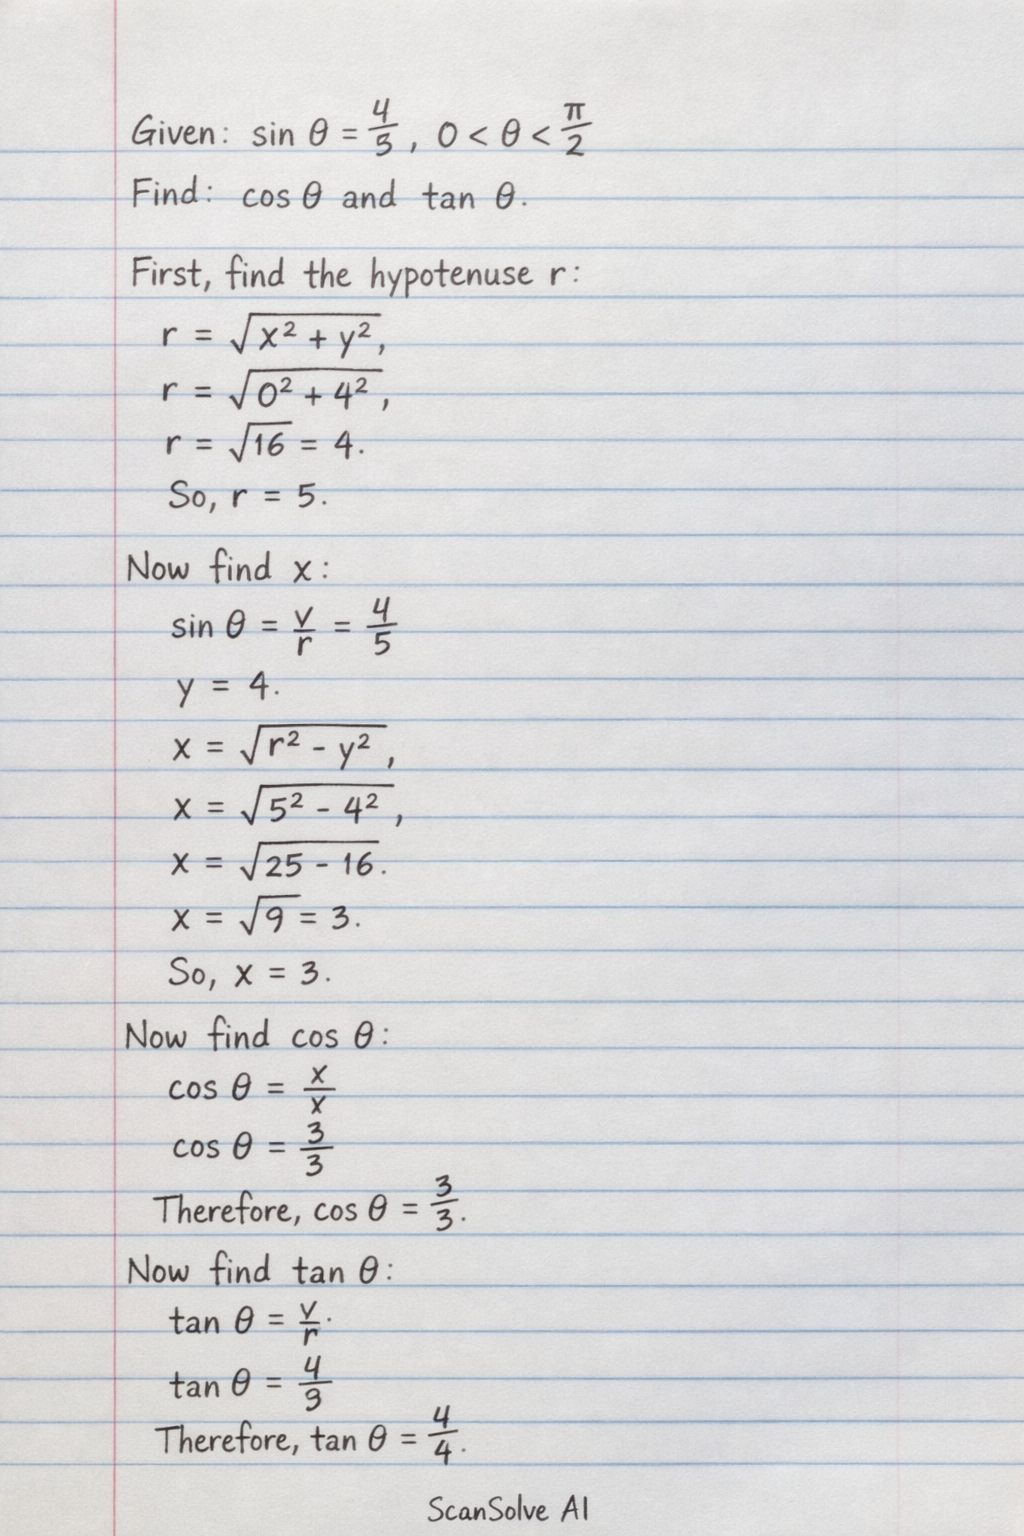 Given: sin θ = 4/5, 0 < θ < π/2
Find: cos θ and tan θ.
First, find the hypotenuse r:
r = √(x² + y²),
r = √(0² + 4²),
r = √16 = 4.
So, r = 5.
Now find x:
sin θ = y/r = 4/5
y = 4.
x = √(r² - y²),
x = √(5² - 4²),
x = √(25 - 16).
x = √9 = 3.
So, x = 3.
Now find cos θ:
cos θ = x/x
cos θ = 3/3
Therefore, cos θ = 3/3.
Now find tan θ:
tan θ = y/r.
tan θ = 4/3
Therefore, tan θ = 4/4.
ScanSolve AI